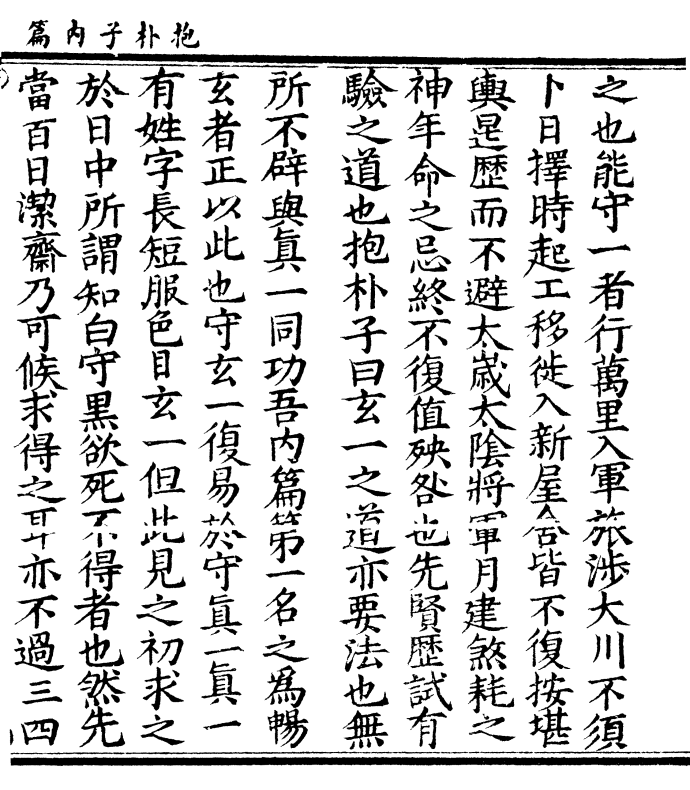 抱朴子内篇
之也能守一者行萬里入軍旅涉大川不須
卜日擇時起工移徙入新屋舍皆不復按堪
輿星歷而不避太歲太陰將軍月建煞耗之
神年命之忌終不復值殃咎也先賢歷試有
驗之道也抱朴子曰玄一之道亦要法也無
所不辟與眞一同功吾内篇第一名之爲暢
玄者正以此也守玄一復易於守眞一眞一
有姓字長短服色目玄一但此見之初求之
於日中所謂知白守黑欲死不得者也然先
當百日潔齋乃可候求得之耳亦不過三四